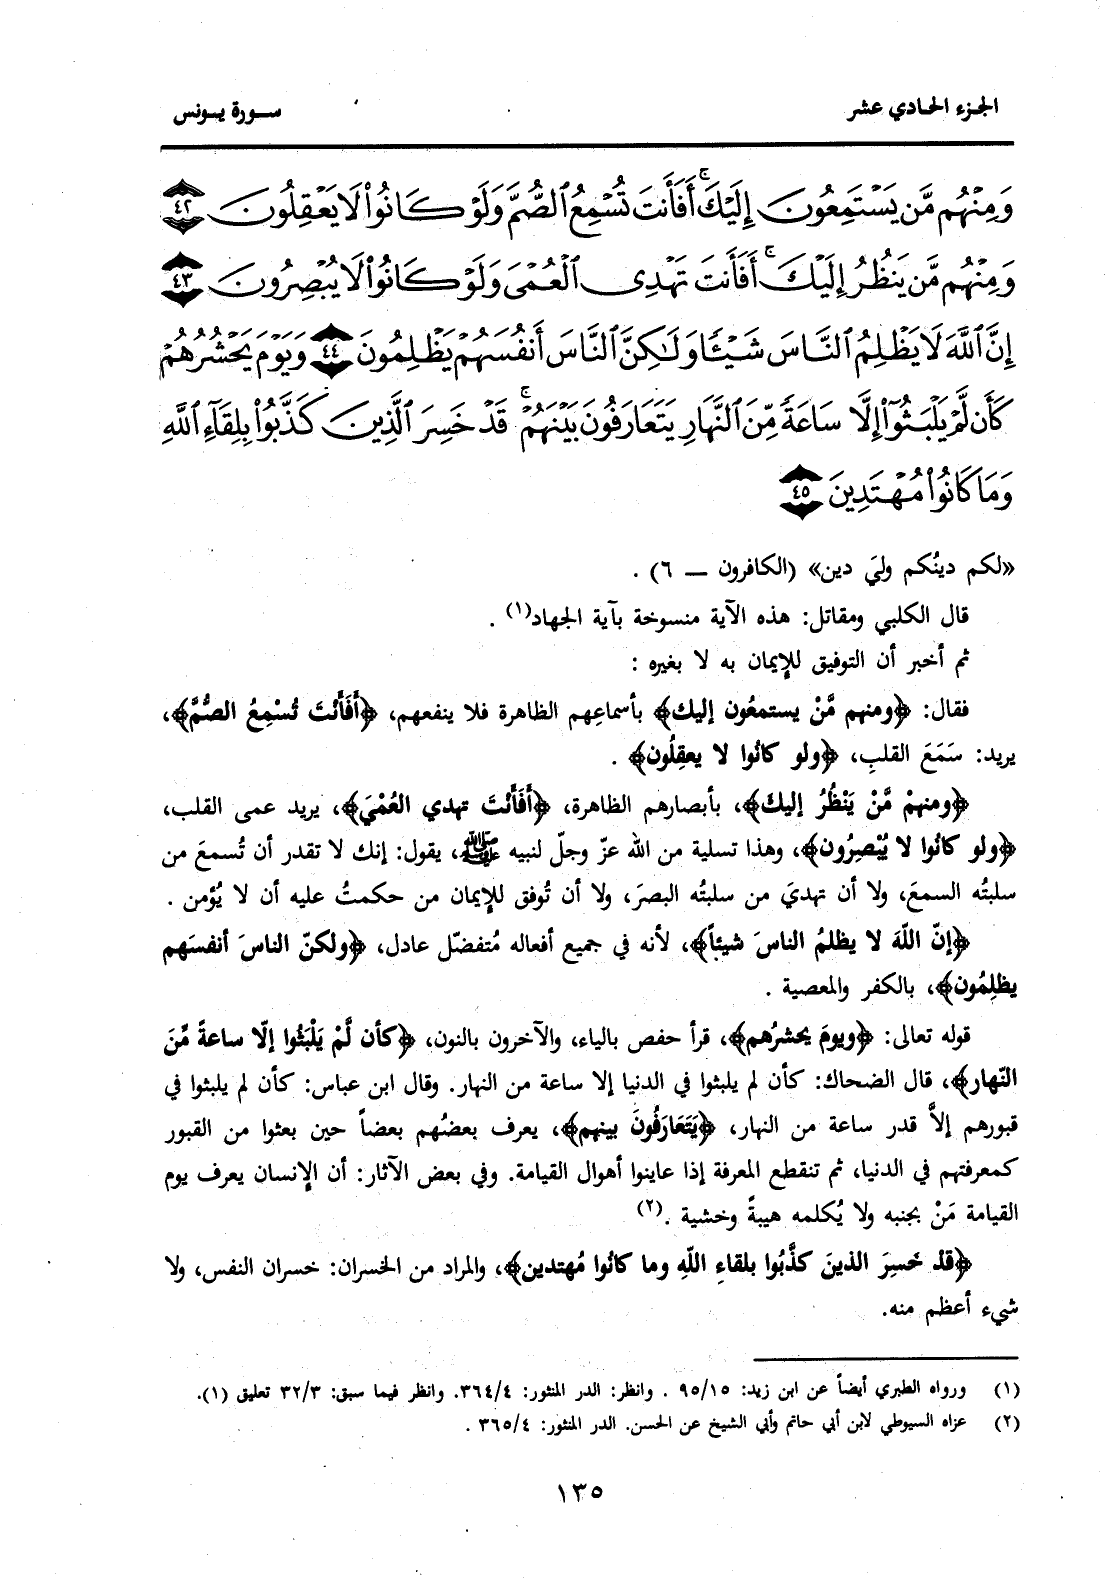 الجزء الحادي عشر
سورة يونس
وَمِنْهُم مَّن يَسْتَمِعُونَ إِلَيْكَ ۚ أَفَأَنتَ تُسْمِعُ ٱلصُّمَّ وَلَوْ كَانُوا۟ لَا يَعْقِلُونَ ٤٢
وَمِنْهُم مَّن يَنظُرُ إِلَيْكَ ۚ أَفَأَنتَ تَهْدِى ٱلْعُمْىَ وَلَوْ كَانُوا۟ لَا يُبْصِرُونَ ٤٣
إِنَّ ٱللَّهَ لَا يَظْلِمُ ٱلنَّاسَ شَيْـًٔا وَلَـٰكِنَّ ٱلنَّاسَ أَنفُسَهُمْ يَظْلِمُونَ ٤٤ وَيَوْمَ يَحْشُرُهُمْ
كَأَن لَّمْ يَلْبَثُوٓا۟ إِلَّا سَاعَةً مِّنَ ٱلنَّهَارِ يَتَعَارَفُونَ بَيْنَهُمْ ۚ قَدْ خَسِرَ ٱلَّذِينَ كَذَّبُوا۟ بِلِقَآءِ ٱللَّهِ
وَمَا كَانُوا۟ مُهْتَدِينَ ٤٥
«لكم دينُكم وليَ دين» (الكافرون — ٦) .
قال الكلبي ومقاتل: هذه الآية منسوخة بآية الجهاد(١) .
ثم أخبر أن التوفيق للإيمان به لا بغيره :
فقال: ﴿ومنهم مَّنْ يستمعُون إليك﴾ بأسماعِهم الظاهرة فلا ينفعهم، ﴿أَفَأَنْتَ تُسْمِعُ الصُّمَّ﴾،
يريد: سَمَعَ القلبِ، ﴿ولو كانُوا لا يعقِلُون﴾ .
﴿ومنهمْ مَّنْ يَنْظُرُ إليكَ﴾، بأبصارهم الظاهرة، ﴿أَفَأَنْتَ تهدي العُمْيَ﴾، يريد عمى القلب،
﴿ولو كانُوا لا يُبْصِرُون﴾، وهذا تسلية من الله عزّ وجلّ لنبيه ﷺ، يقول: إنك لا تقدر أن تُسمعَ من
سلبتُه السمعَ، ولا أن تهديَ من سلبتُه البصرَ، ولا أن تُوفق للإيمان من حكمتُ عليه أن لا يُؤمن .
﴿إنّ اللّهَ لا يظلمُ الناسَ شيئاً﴾، لأنه في جميع أفعاله مُتفضّل عادل، ﴿ولكنّ الناسَ أنفسَهم
يظلِمُون﴾، بالكفر والمعصية .
قوله تعالى: ﴿ويومَ يحشرُهم﴾، قرأ حفص بالياء، والآخرون بالنون، ﴿كأن لَّمْ يَلْبَثُوا إلّا ساعةً مِّنَ
النّهار﴾، قال الضحاك: كأن لم يلبثوا في الدنيا إلا ساعة من النهار. وقال ابن عباس: كأن لم يلبثوا في
قبورهم إلاَّ قدر ساعة من النهار، ﴿يَتَعَارَفُونَ بينهم﴾، يعرف بعضُهم بعضاً حين بعثوا من القبور
كمعرفتهم في الدنيا، ثم تنقطع المعرفة إذا عاينوا أهوال القيامة. وفي بعض الآثار: أن الإنسان يعرف يوم
القيامة مَنْ بجنبه ولا يُكلمه هيبةً وخشية .(٢)
﴿قد خَسِرَ الذينَ كذَّبُوا بلقاءِ اللّهِ وما كانُوا مُهتدين﴾، والمراد من الخسران: خسران النفس، ولا
شيء أعظم منه.
(١) ورواه الطبري أيضاً عن ابن زيد: ٩٥/١٥ . وانظر: الدر المنثور: ٣٦٤/٤. وانظر فيما سبق: ٣٢/٣ تعليق (١).
(٢) عزاه السيوطي لابن أبي حاتم وأبي الشيخ عن الحسن. الدر المنثور: ٣٦٥/٤ .
١٣٥